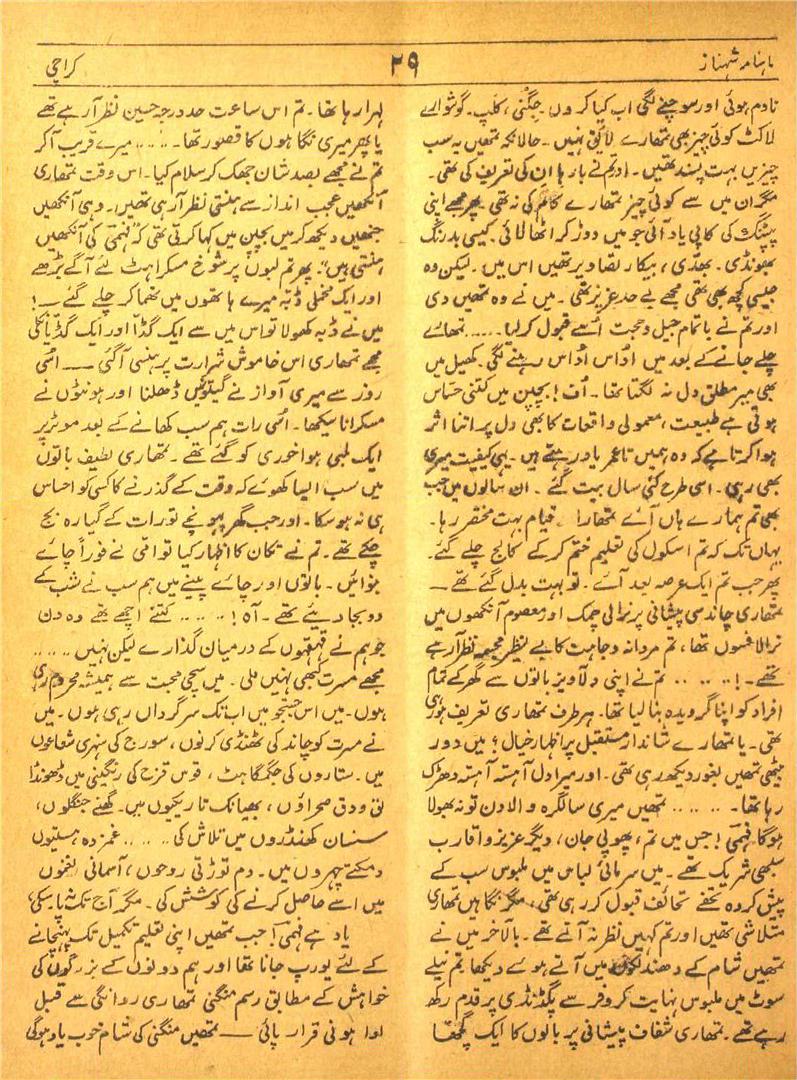 ماہنامہ شہناز
۲۹
کراچی
نادم ہوئی اور سوچنے لگی اب کیا کروں۔ جگنی، کلپ۔ گوشوارے
لاکٹ کوئی چیز بھی تمھارے لائق نہیں۔ حالانکہ تمھیں یہ سب
چیزیں بہت پسند تھیں۔ اور تم نے بارہا ان کی تعریف کی تھی۔
مگر ان میں سے کوئی چیز تمھارے کام کی نہ تھی پھر مجھے اپنی
پینٹنگ کی کاپی یاد آئی جو میں دوڑ کر اٹھا لائی۔ کیسی بد رنگ
بھونڈی۔ بھدی، بیکار تصاویر تھیں اس میں۔ لیکن وہ
جیسی کچھ بھی تھی مجھے بے حد عزیز تھی۔ میں نے وہ تمھیں دی
اور تم نے باتمام جیل و حجت اسے قبول کر لیا ..... تمھارے
چلے جانے کے بعد میں اداس اداس رہنے لگی۔ کھیل میں
بھی میرا مطلق دل نہ لگتا تھا۔ اُف! بچپن میں کتنی حساس
ہوتی ہے طبیعت، معمولی واقعات کا بھی دل پر اتنا اثر
ہوا کرتا ہے کہ وہ ہمیں تاعمر یاد رہتے ہیں۔ یہی کیفیت میری
بھی رہی۔ اسی طرح کئی سال بیت گئے۔ ان سالوں میں جب
بھی تم ہمارے ہاں آئے تمھارا قیام بہت مختصر رہا۔
یہاں تک کہ تم اسکول کی تعلیم ختم کر کے کالج چلے گئے۔
پھر جب تم ایک عرصہ بعد آئے۔ تو بہت بدل گئے تھے —
تمھاری چاند سی پیشانی پر نرالی چمک اور معصوم آنکھوں میں
نرالا فسوں تھا، تم مردانہ وجاہت کا بے نظیر مجسمہ نظر آ رہے
تھے۔! ..... تم نے اپنی دلآویز باتوں سے گھر کے تمام
افراد کو اپنا گرویدہ بنا لیا تھا۔ ہر طرف تمھاری تعریف ہو رہی
تھی۔ یا تمھارے شاندار مستقبل پر اظہار خیال؟ میں دور
بیٹھی تمھیں بغور دیکھ رہی تھی۔ اور میرا دل آہستہ آہستہ دھڑک
رہا تھا۔ ..... تمھیں میری سالگرہ والا دن تو نہ بھولا
ہوگا فہمی! جس میں تم، پھوپی جان، دیگر عزیز و اقارب
سبھی شریک تھے۔ میں سرمائی لباس میں ملبوس سب کے
پیش کردہ تحفے تحائف قبول کر رہی تھی، مگر نگاہیں تمھاری
متلاشی تھیں اور تم کہیں نظر نہ آتے تھے۔ بالآخر میں نے
تمھیں شام کے دھندلکوں میں آتے ہوئے دیکھا۔ تم نیلے
سوٹ میں ملبوس نہایت کروفر سے پگڈنڈی پر قدم رکھ
رہے تھے۔ تمھاری شفاف پیشانی پر بالوں کا ایک گچھا
لہرا رہا تھا۔ تم اس ساعت حد درجہ حسین نظر آ رہے تھے
یا پھر میری نگاہوں کا قصور تھا۔ ..... میرے قریب آ کر
تم نے مجھے بصد شان جھک کر سلام کیا۔ اس وقت تمھاری
آنکھیں عجب انداز سے ہنستی نظر آ رہی تھیں۔ وہی آنکھیں
جنھیں دیکھ کر میں بچپن میں کہا کرتی تھی کہ "فہمی کی آنکھیں
ہنستی ہیں"۔ پھر تم لبوں پر شوخ مسکراہٹ لئے آگے بڑھے
اور ایک مخملی ڈبہ میرے ہاتھوں میں تھما کر چلے گئے —!
میں نے ڈبہ کھولا تو اس میں سے ایک گڈا اور ایک گڈیا نکلی
مجھے تمھاری اس خاموش شرارت پر ہنسی آ گئی — اسی
روز سے میری آواز نے گیتوں میں ڈھلنا اور ہونٹوں نے
مسکرانا سیکھا۔ اسی رات ہم سب کھانے کے بعد موٹر پر
ایک لمبی ہوا خوری کو گئے تھے۔ تمھاری لطیف باتوں
میں سب ایسا کھوئے کہ وقت کے گذرنے کا کسی کو احساس
ہی نہ ہو سکا۔ اور جب گھر پہونچے تو رات کے گیارہ بج
چکے تھے۔ تم نے تکان کا اظہار کیا تو امی نے فوراً چائے
بنوائی۔ باتوں اور چائے پینے میں ہم سب نے شب کے
دو بجا دیئے تھے۔ آہ! ..... کتنے اچھے تھے وہ دن
جو ہم نے قہقہوں کے درمیان گذارے لیکن نہیں .....
مجھے مسرت کبھی نہیں ملی۔ میں سچی محبت سے ہمیشہ محروم رہی
ہوں۔ میں اس جستجو میں اب تک سرگرداں رہی ہوں۔ میں
نے مسرت کو چاند کی ٹھنڈی کرنوں، سورج کی سنہری شعاعوں
میں۔ ستاروں کی جگمگاہٹ، قوس قزح کی رنگینی میں ڈھونڈا
لق و دق صحراؤں، بھیانک تاریکیوں میں۔ گھنے جنگلوں،
سنسان کھنڈروں میں تلاش کی ..... غمزدہ ہستیوں
دمکتے چہروں میں۔ دم توڑتی روحوں، آسمانی نغموں
میں اسے حاصل کرنے کی کوشش کی۔ مگر آج تک نہ پا سکی،
یاد ہے فہمی! جب تمھیں اپنی تعلیم تکمیل تک پہنچانے
کے لئے یورپ جانا تھا اور ہم دونوں کے بزرگوں کی
خواہش کے مطابق رسم منگنی تمھاری روانگی سے قبل
ادا ہونی قرار پائی — تمھیں منگنی کی شام خوب یاد ہوگی